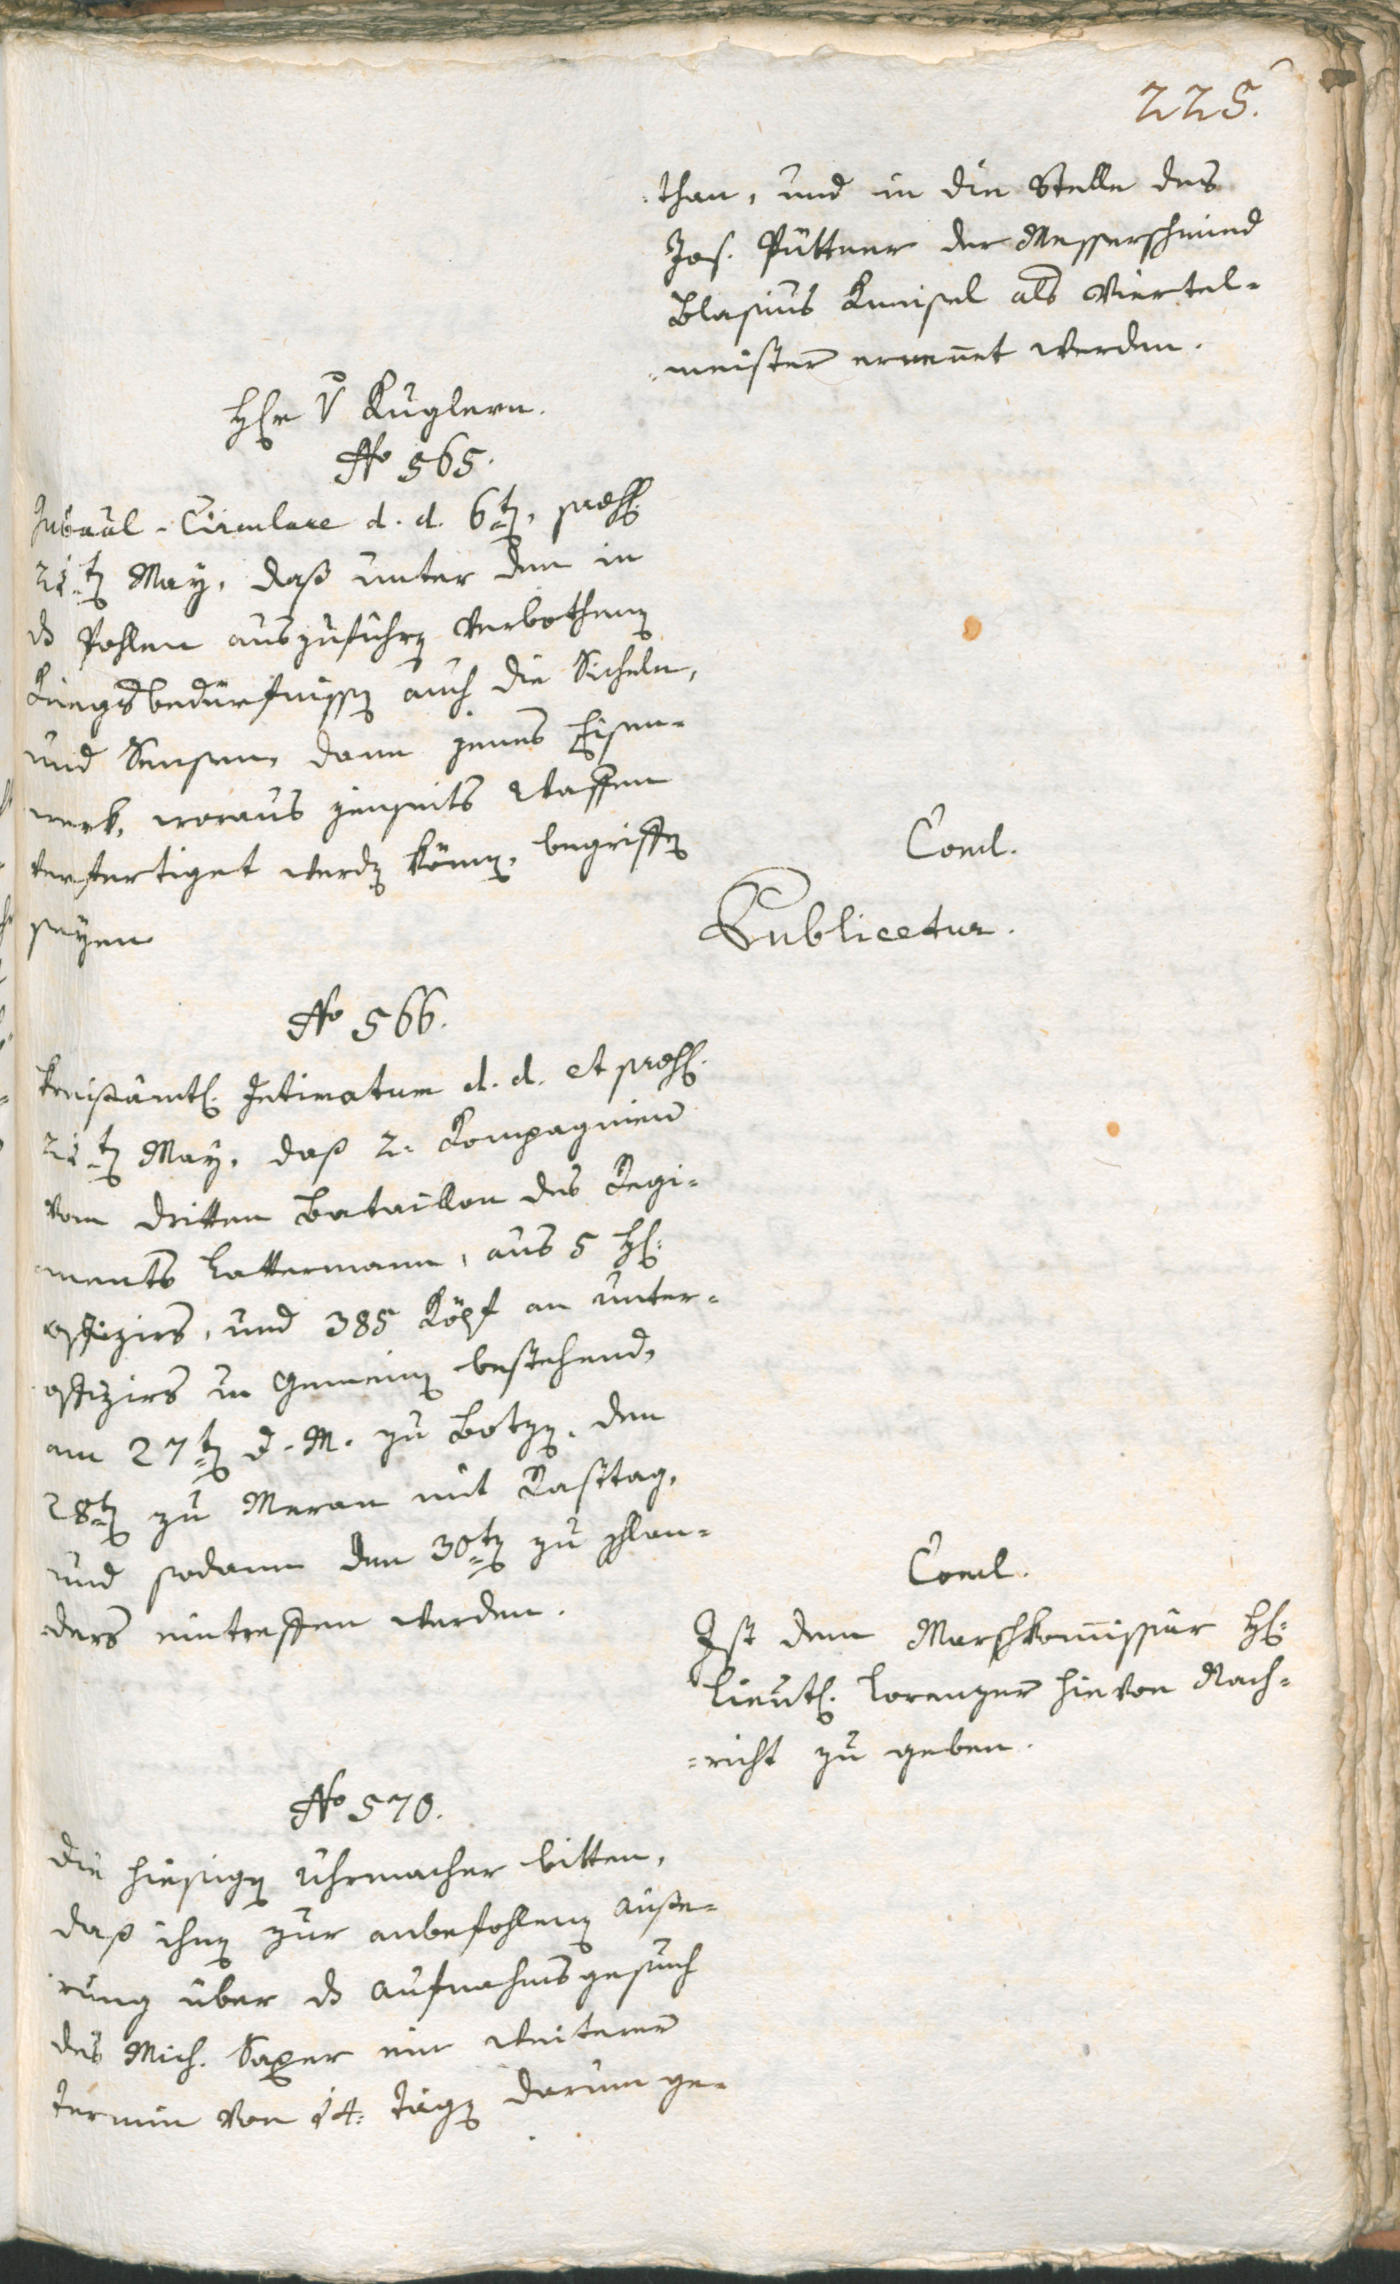 225.
than, und in die Stelle des
Jos. Püttner der Messerschmied
Blasius Kneisel als Viertel-
meister ernennet werden.
H. v Kuglern.
No 565.
Gubaal-Circulare d. d. 6t, præs.
21t May, daß unter den in
d Pohlen auszuführ verbothen
Kriegsbedürfniss auch die Sicheln,
und Sensen, dann jenes Eisen-
werk, woraus jenseits Waffen
verfertiget werd kön, begriff
seyen
Concl.
Publicetur.
No 566.
Kreisämtl. Intimatum d. d. et præs.
21t May, daß 2. Kompagnien
vom dritten Bataillon des Regi-
ments Lattermann, aus 5 H:
offizirs, und 385 Köpf an unter-
offizirs u Gemein bestehend,
am 27t d. M. zu Botz, den
28t zu Meran mit Rasttag,
und sodann den 30t zu Schlan-
ders eintreffen werden.
Concl.
Ist dem Marschkommissär H:
Lieut. Lorenzer hievon Nach-
-richt zu geben.
No 570.
Die hiesig Uhrmacher bitten,
daß ihn zur anbefohlen äuße-
rung über d Aufnahmsgesuch
des Mich. Saxer ein weiterer
Termin von 14. täg darum ge-